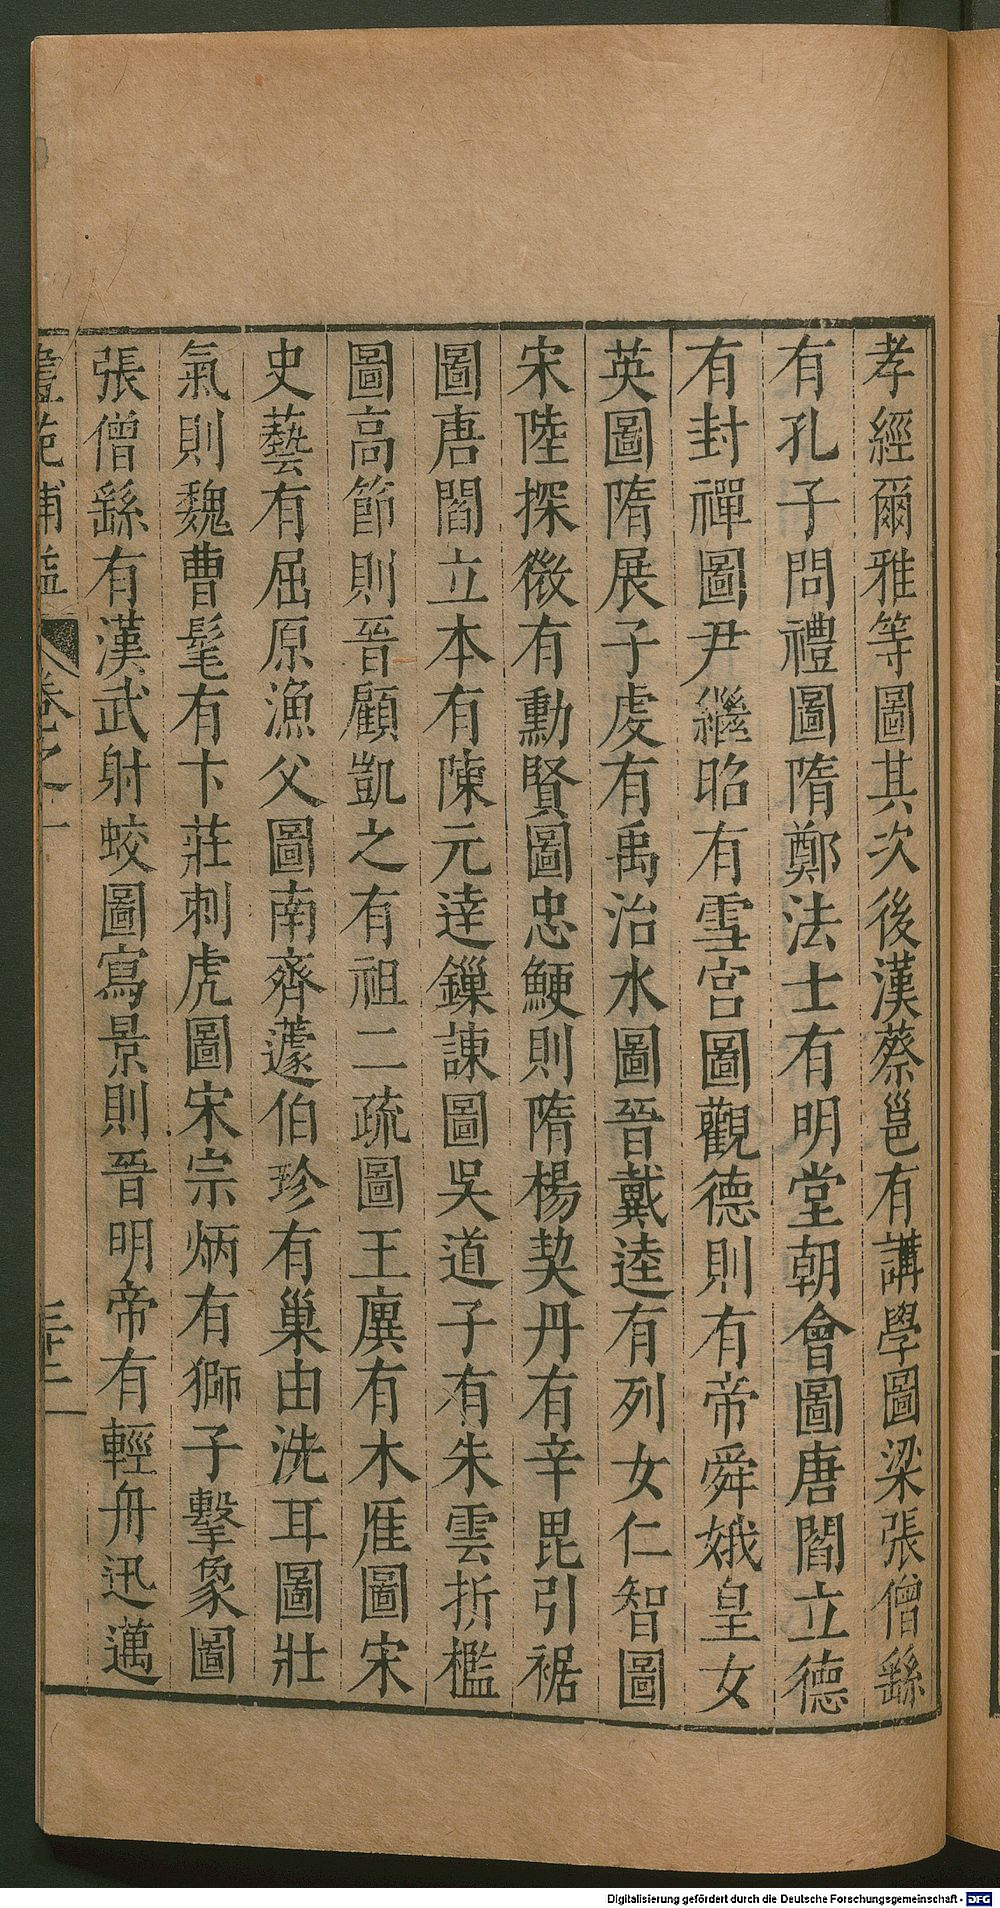 孝經爾雅等圖其次後漢蔡邕有講學圖梁張僧繇
有孔子問禮圖隋鄭法士有明堂朝會圖唐閻立德
有封禪圖尹繼昭有雪宮圖觀德則有帝舜娥皇女
英圖隋展子虔有禹治水圖晉戴逵有列女仁智圖
宋陸探微有勳賢圖忠鯁則隋楊契丹有辛毘引裾
圖唐閻立本有陳元達鏁諫圖吳道子有朱雲折檻
圖高節則晉顧凱之有祖二疏圖王廙有木雁圖宋
史藝有屈原漁父圖南齊蘧伯珍有巢由洗耳圖壯
氣則魏曹髦有卞莊刺虎圖宋宗炳有獅子擊象圖
張僧繇有漢武射蛟圖寫景則晉明帝有輕舟迅邁
卷之十
Digitalisierung gefördert durch die Deutsche Forschungsgemeinschaft - DFG